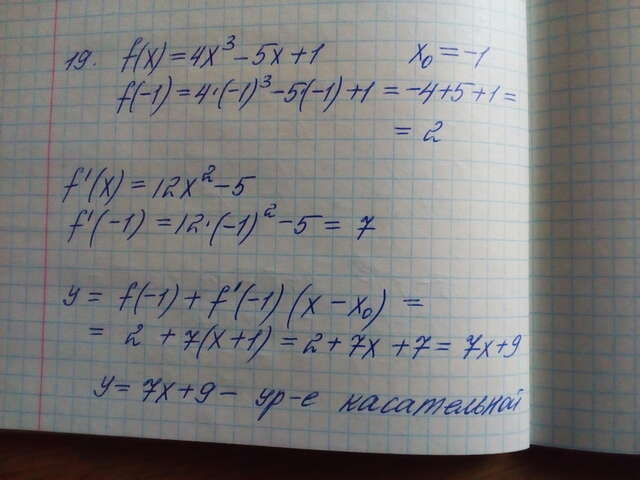 19. f(x) = 4x³ - 5x + 1 x₀ = -1
f(-1) = 4·(-1)³ - 5·(-1) + 1 = -4 + 5 + 1 =
= 2
f'(x) = 12x² - 5
f'(-1) = 12·(-1)² - 5 = 7
y = f(-1) + f'(-1)(x - x₀) =
= 2 + 7(x + 1) = 2 + 7x + 7 = 7x + 9
y = 7x + 9 - ур-е касательной